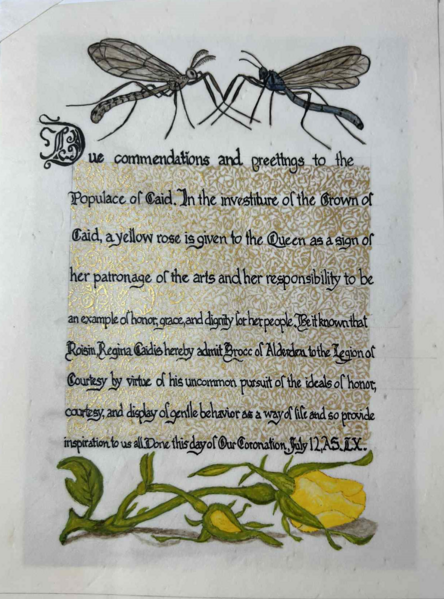 Due commendations and greetings to the
Populace of Caid. In the investiture of the Crown of
Caid, a yellow rose is given to the Queen as a sign of
her patronage of the arts and her responsibility to be
an example of honor, grace, and dignity for her people. Be it known that
Roisin Regina Caidis hereby admit Brocc of Alderden to the Legion of
Courtesy by virtue of his uncommon pursuit of the ideals of honor,
courtesy, and display of gentle behavior as a way of life and so provide
inspiration to us all. Done this day of Our Coronation, July 12, A.S. LX.